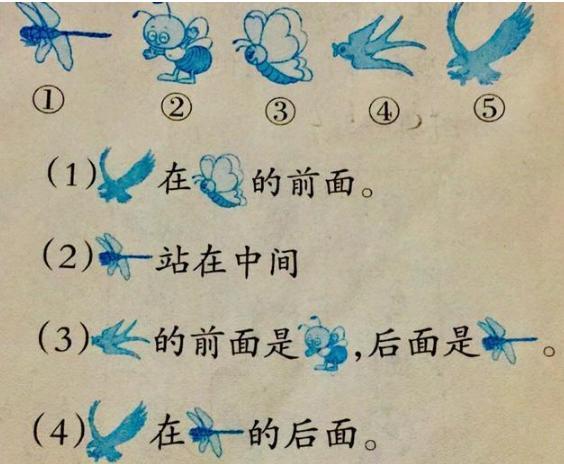 ① ② ③ ④ ⑤
(1)在的前面。
(2)站在中间
(3)的前面是,后面是。
(4)在的后面。